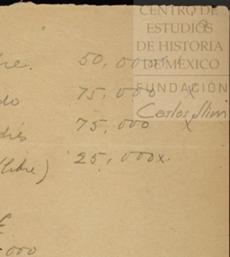 CENTRO DE
ESTUDIOS
DE HISTORIA
DE MÉXICO
FUNDACIÓN
Carlos Slim
re. 50,000x
do 75,000 x
és 75,000 x
libre) 25,000x.
000